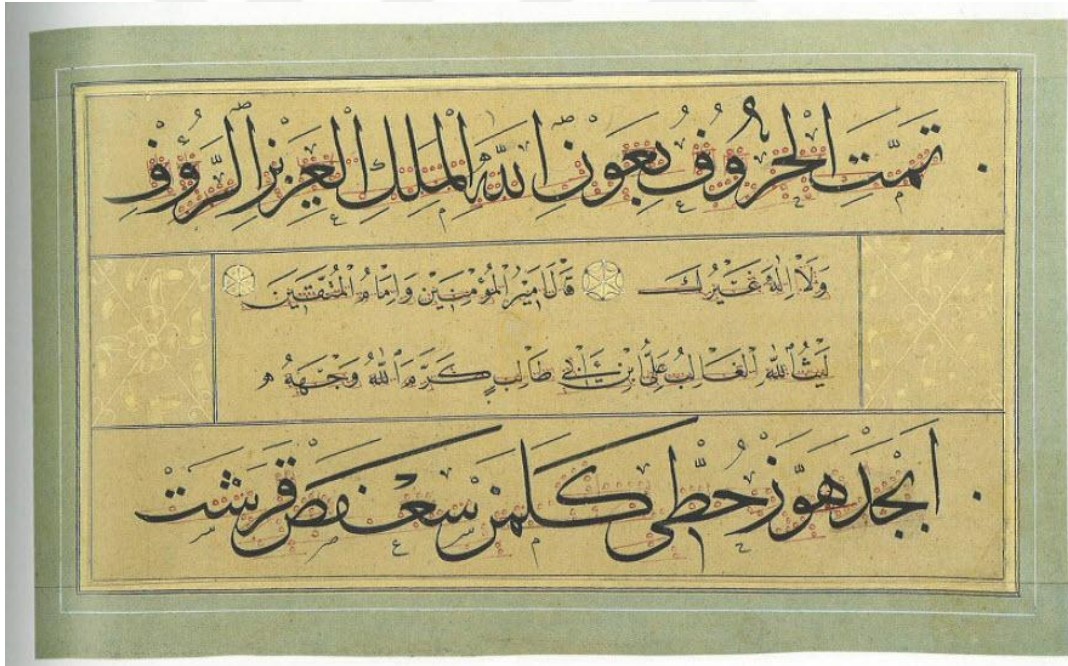 تمَّتِ الْحُرُوفُ بِعَوْنِ اللّٰهِ الْمَلِكِ الْعَزِيزِ الرَّؤُفِ
وَلَا اِلٰهَ غَيْرُكَ قَالَ اَمِيرُ الْمُؤْمِنِينَ وَاِمَامُ الْمُتَّقِينَ
لَيْثُ اللّٰهِ الْغَالِبُ عَلِيُّ ابْنُ اَبِي طَالِبٍ كَرَّمَ اللّٰهُ وَجْهَهُ
اَبْجَدْ هَوَّزْ حُطِّي كَلَمَنْ سَعْفَصْ قَرَشَتْ